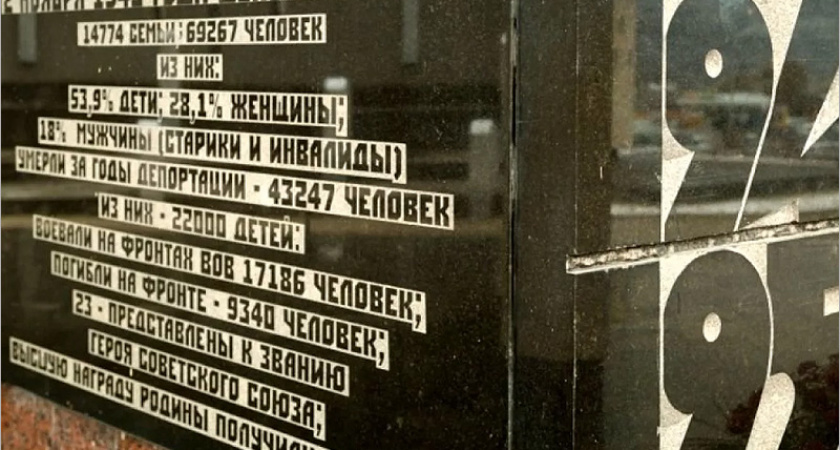 14774 СЕМЬИ; 69267 ЧЕЛОВЕК
ИЗ НИХ:
53,9% ДЕТИ; 28,1% ЖЕНЩИНЫ;
18% МУЖЧИНЫ (СТАРИКИ И ИНВАЛИДЫ)
УМЕРЛИ ЗА ГОДЫ ДЕПОРТАЦИИ - 43247 ЧЕЛОВЕК
ИЗ НИХ - 22000 ДЕТЕЙ:
ВОЕВАЛИ НА ФРОНТАХ ВОВ 17186 ЧЕЛОВЕК;
ПОГИБЛИ НА ФРОНТЕ - 9340 ЧЕЛОВЕК;
23 - ПРЕДСТАВЛЕНЫ К ЗВАНИЮ
ГЕРОЯ СОВЕТСКОГО СОЮЗА;
ВЫСШУЮ НАГРАДУ РОДИНЫ ПОЛУЧИЛИ